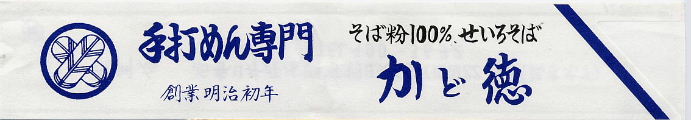 手打めん専門
創業明治初年
そば粉100%、せいろそば
かど徳